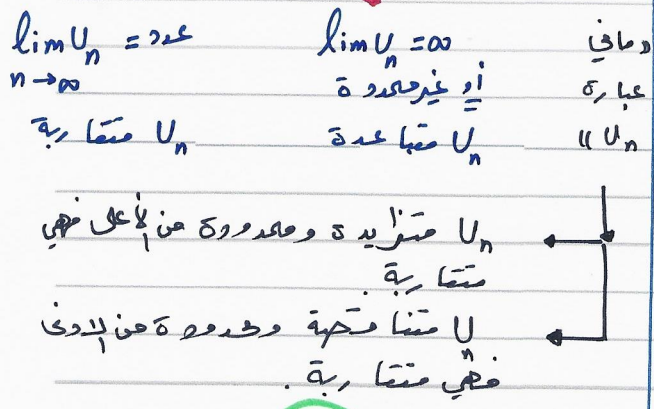 lim Uₙ = عدد    lim Uₙ = ∞    وماني
n→∞    أو غير محدودة    عبارة
Uₙ متقاربة    Uₙ متباعدة    Uₙ "
Uₙ متزايدة ومحدودة من الأعلى فهي
متقاربة.
Uₙ متناقصة ومحدودة من الأدنى
فهي متقاربة.